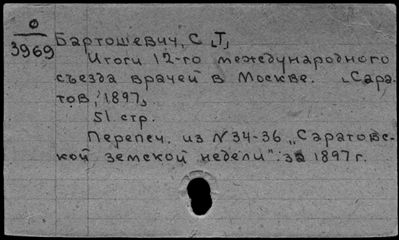 0
3969
Бартошевич, С [Т]
Итоги 12-го международного
съезда врачей в Москве. [Сара-
тов, 1897]
51 стр.
Перепеч. из N 34-36 „Саратовс-
кой земской недели" за 1897 г.